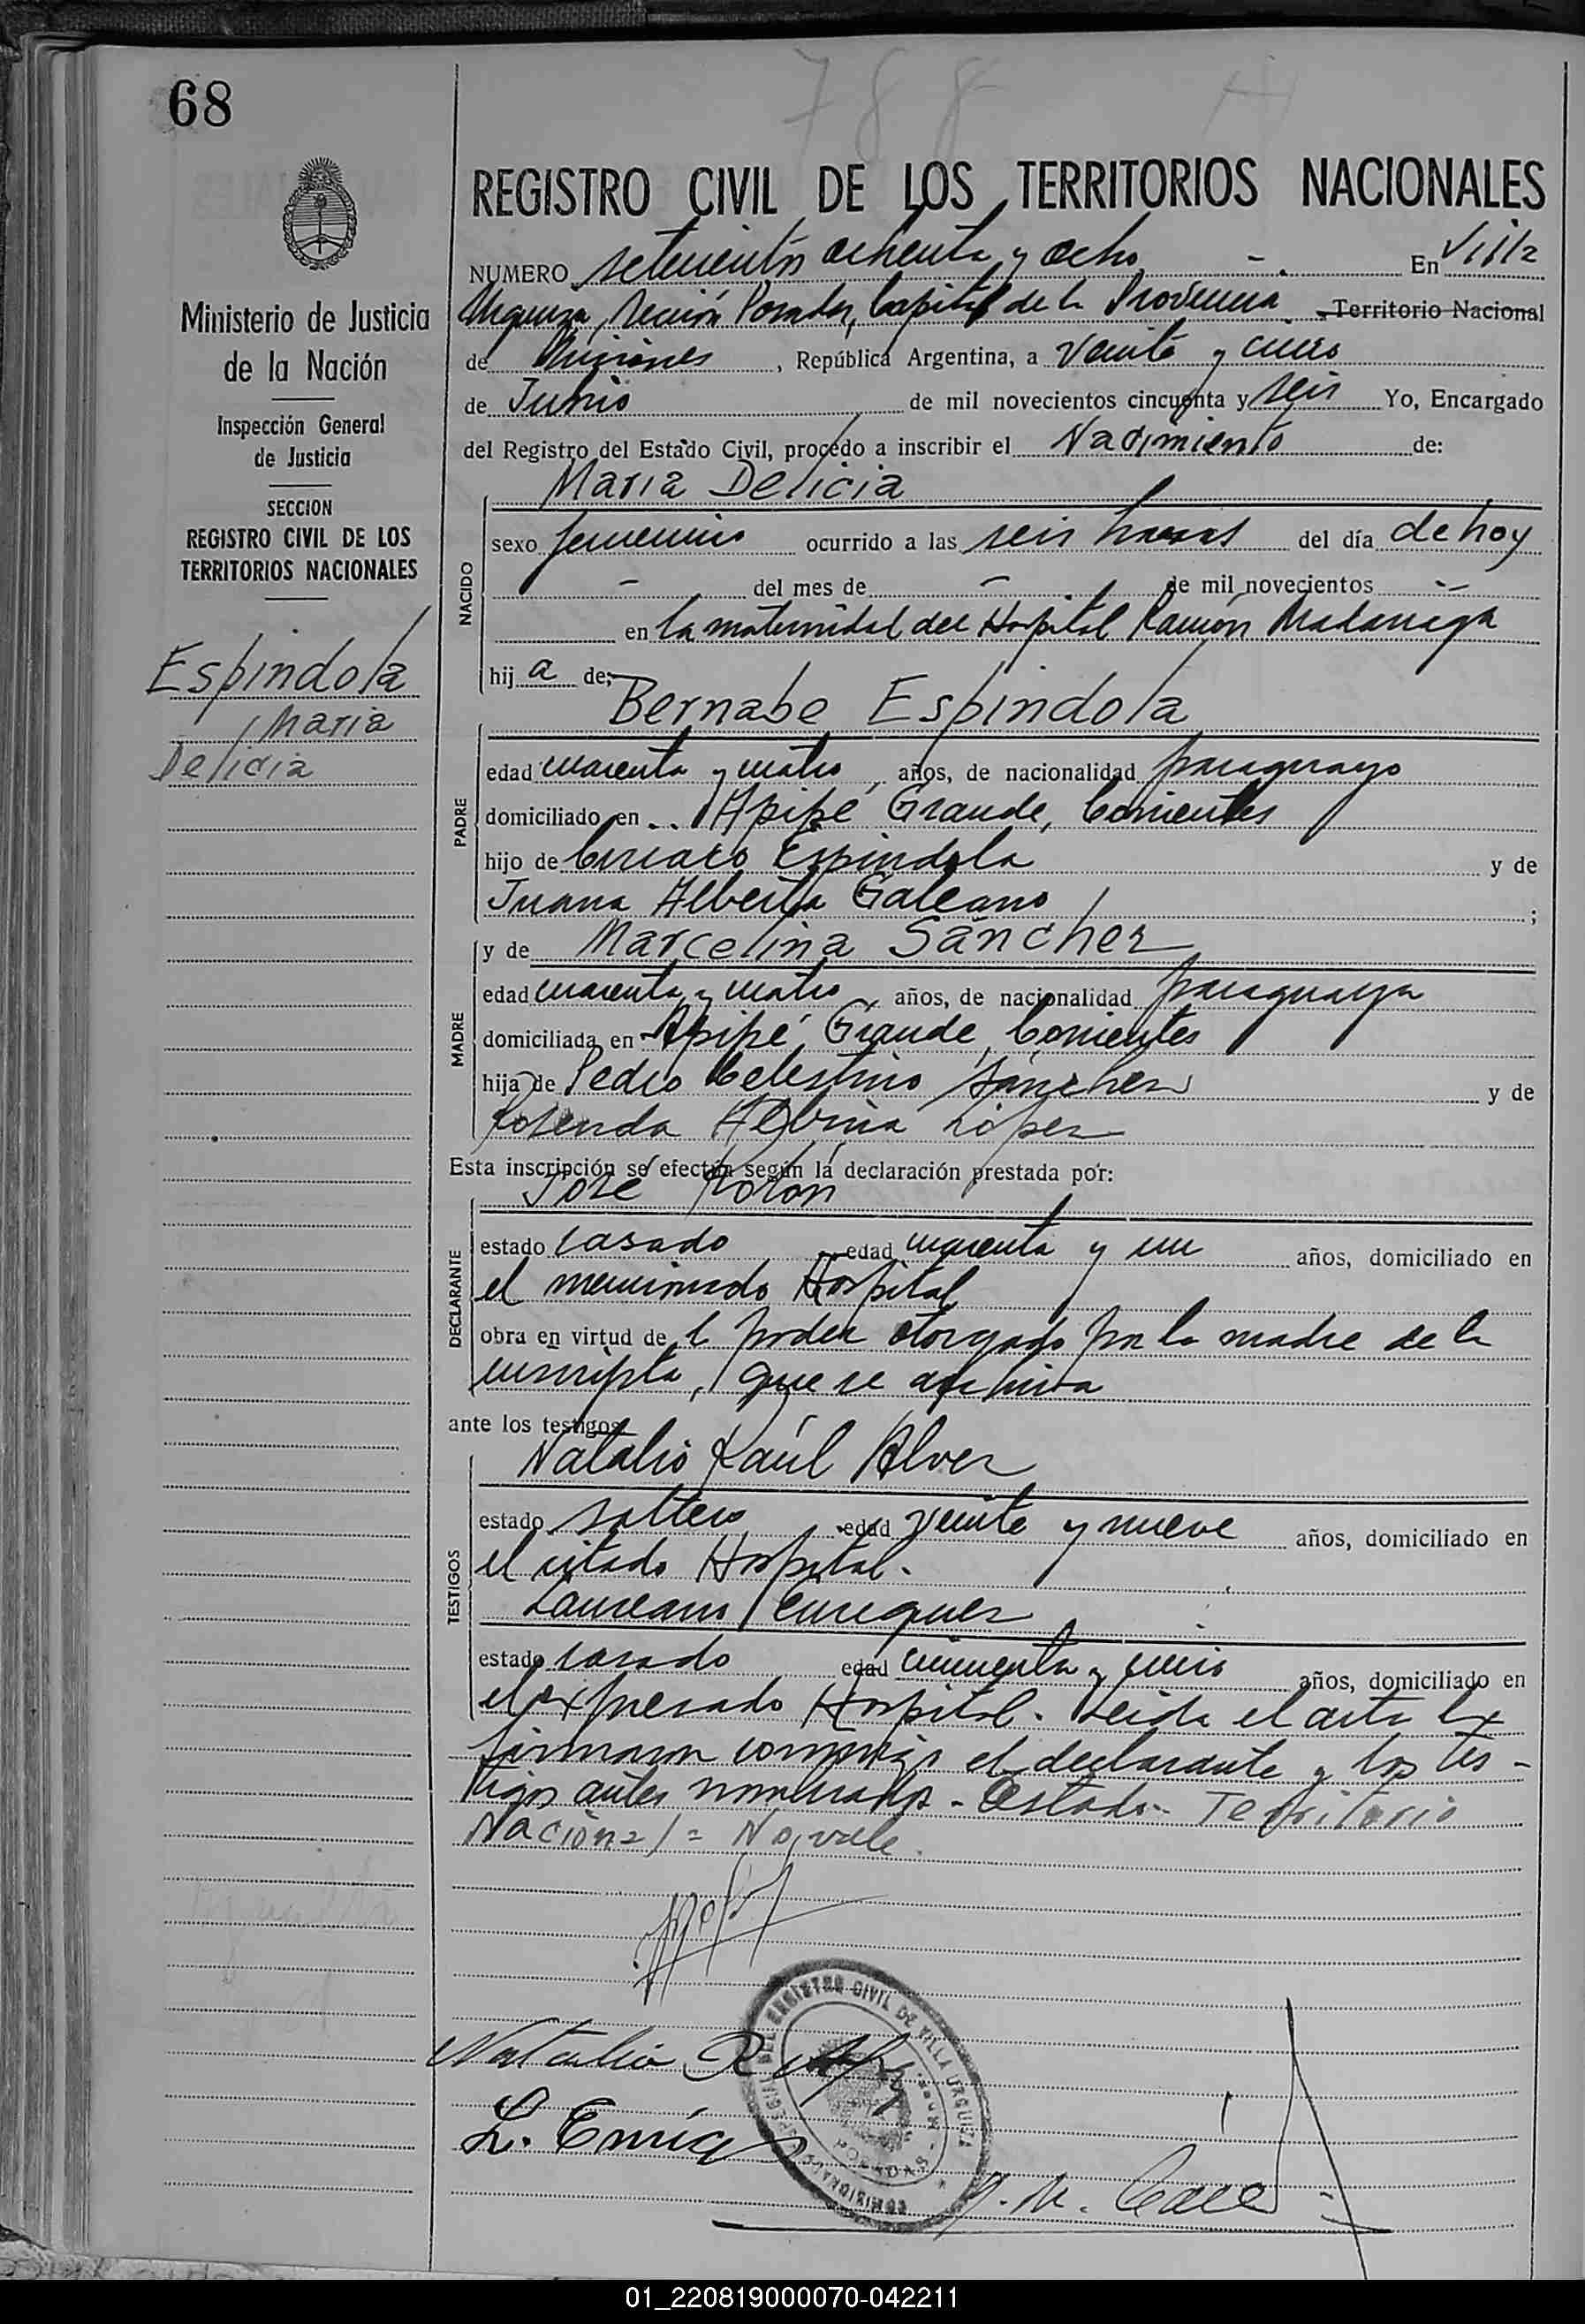 788
68
REGISTRO CIVIL DE LOS TERRITORIOS NACIONALES
NUMERO setecientos ochenta y ocho - . En Villa
Urquiza, Sección Posadas, Capital de la Provincia Territorio Nacional
de Misiones, República Argentina, a veinte y cinco
de Junio de mil novecientos cincuenta y seis Yo, Encargado
del Registro del Estado Civil, procedo a inscribir el Nacimiento de:
Maria Delicia
NACIDO
sexo femenino ocurrido a las seis horas del día de hoy
- del mes de - de mil novecientos -
en la maternidad del Hospital Ramón Madariaga
hij a de:
Bernabe Espindola
PADRE
edad cuarenta y cuatro años, de nacionalidad paraguayo
domiciliado en Apipé Grande, Corrientes
hijo de Ciriaco Espindola y de
Juana Alberta Galeano ;
y de Marcelina Sánchez
MADRE
edad cuarenta y cuatro años, de nacionalidad paraguaya
domiciliada en Apipé Grande, Corrientes
hija de Pedro Celestino Sánchez y de
Rosenda Albina López
Esta inscripción se efectúa según la declaración prestada por:
José Rolón
DECLARANTE
estado casado edad cuarenta y un años, domiciliado en
el mencionado Hospital
obra en virtud de l poder otorgado por la madre de la
inscripta, que se archiva
ante los testigos
Natalio Raúl Alvez
TESTIGOS
estado soltero edad veinte y nueve años, domiciliado en
el citado Hospital.
Laureano Enriquez
estado casado edad cincuenta y cinco años, domiciliado en
el expresado Hospital. Leida el acta la
firmaron conmigo el declarante y los tes-
tigos antes nombrados - Testado - Territorio
Nacional = No vale.
Ministerio de Justicia
de la Nación
Inspección General
de Justicia
SECCION
REGISTRO CIVIL DE LOS
TERRITORIOS NACIONALES
Espindola
Maria
Delicia
Natalio R
L. Enriq
DEL REGISTRO CIVIL DE VILLA URQUIZA
POSADAS
01_220819000070-042211